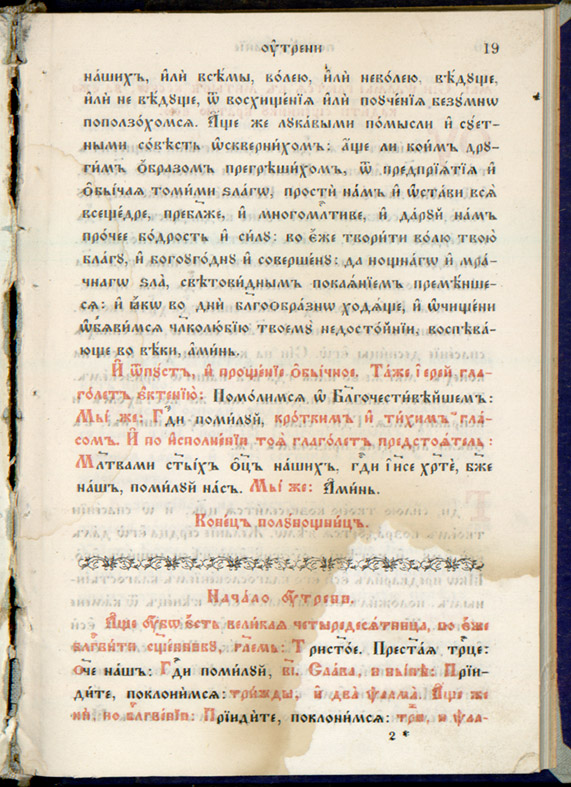 оу҆́трени 19
на́шихъ, и҆лѝ всѣ́мы, во́лею, и҆лѝ нево́лею, вѣ́дꙋще,
и҆лѝ не вѣ́дꙋще, ѿ восхище́нїѧ и҆лѝ поꙋче́нїѧ безꙋ́мнѡ
поползо́хомсѧ. А҆́ще же лꙋка́выми по́мысли и҆ сꙋ́ет-
ными со́вѣсть ѡ҆скверни́хомъ: а҆́ще ли кои́мъ дрꙋ-
ги́мъ ѻ҆́бразомъ прегрѣши́хомъ, ѿ предпрїѧ́тїѧ и҆
ѻ҆бы́чаѧ томи́ми ѕла́гѡ, простѝ на́мъ и҆ ѡ҆ста́ви всѧ̑
всеще́дре, пребл҃же, и҆ многомл҃тиве, и҆ да́рꙋй на́мъ
про́чее бо́дрость и҆ си́лꙋ: во є҆́же твори́ти во́лю твою̀
благꙋ́, и҆ богоꙋго́днꙋ и҆ соверше́нꙋ: да нощна́гѡ и҆ мра́-
чнагѡ ѕла̀, свѣтови́днымъ покаѧ́нїемъ премѣ́нше-
сѧ: и҆ ꙗ҆́кѡ во днѝ бл҃гоѻбра́знѡ ходѧ́ще, и҆ ѡ҆чище́ни
ѡ҆б̾ѧви́мсѧ чл҃колю́бїю твоемꙋ̀ недосто́йнїи, воспѣва́-
юще во вѣ́ки, а҆ми́нь.
И҆ ѿпꙋ́стъ, и҆ проще́нїе ѻ҆бы́чное. Та́же, і҆ере́й гла-
го́летъ є҆ктенїю̀: Помо́лимсѧ ѡ҆ Благочести́вѣйшемъ:
Мы́ же: Гд҃и поми́лꙋй, кро́ткимъ и҆ ти́химъ гла́-
сомъ. И҆ по и҆сполне́нїи тоѧ̀ глаго́летъ предстоѧ́тель:
Мл҃твами ст҃ы́хъ ѻ҆ц҃ъ на́шихъ, гд҃и і҆и҃се хр҃тѐ, бж҃е
на́шъ, поми́лꙋй на́съ. Мы́ же: А҆ми́нь.
Коне́цъ полꙋ́нощницъ.
Нача́ло оу҆́трени.
А҆́ще оу҆́бѡ є҆́сть вели́каѧ четыредесѧ́тница, по є҆́же
бл҃гви́ти сщ҃е́нникꙋ, гл҃аемъ: Трист҃о́е. Прест҃а́ѧ трⷪ҇це:
Ѻ҆́ч҃е на́шъ: Гд҃и поми́лꙋй, в҃і. Сла́ва, и҆ ны́нѣ: Прїи-
ди́те, поклони́мсѧ: три́жды, и҆ два̀ ѱалма̀. А҆́ще же
нѝ, по бл҃гве́нїи: Прїиди́те, поклони́мсѧ: три́ж, и҆ ѱал-
2 *